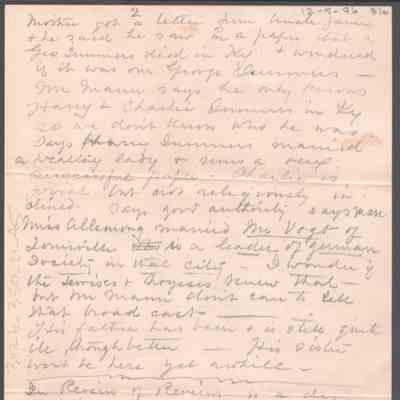 2
12-9-26
Mother got a letter from Uncle James
& he said he saw in a paper that a
Geo Dummers died in Ky & wondered
if it was our George Dummers —
Mr Mann says he only knows
Harry & Charlie Dummers in Ky
so we don't know who he was
Says Harry Dummers married
a wealthy lady & runs a very
successful paper. Charlie is
social but not religiously in
clined. Says good authority, says
Miss Allemong married Mr Vogt of
Louisville is a leader of german
Society in that city — I wonder if
the &  knew that —
but Mr Mann don't care to tell
that broad cast —
His father has been & is still quite
ill, though better — His sister
wont be here yet awhile —
In Review of Reviews is a